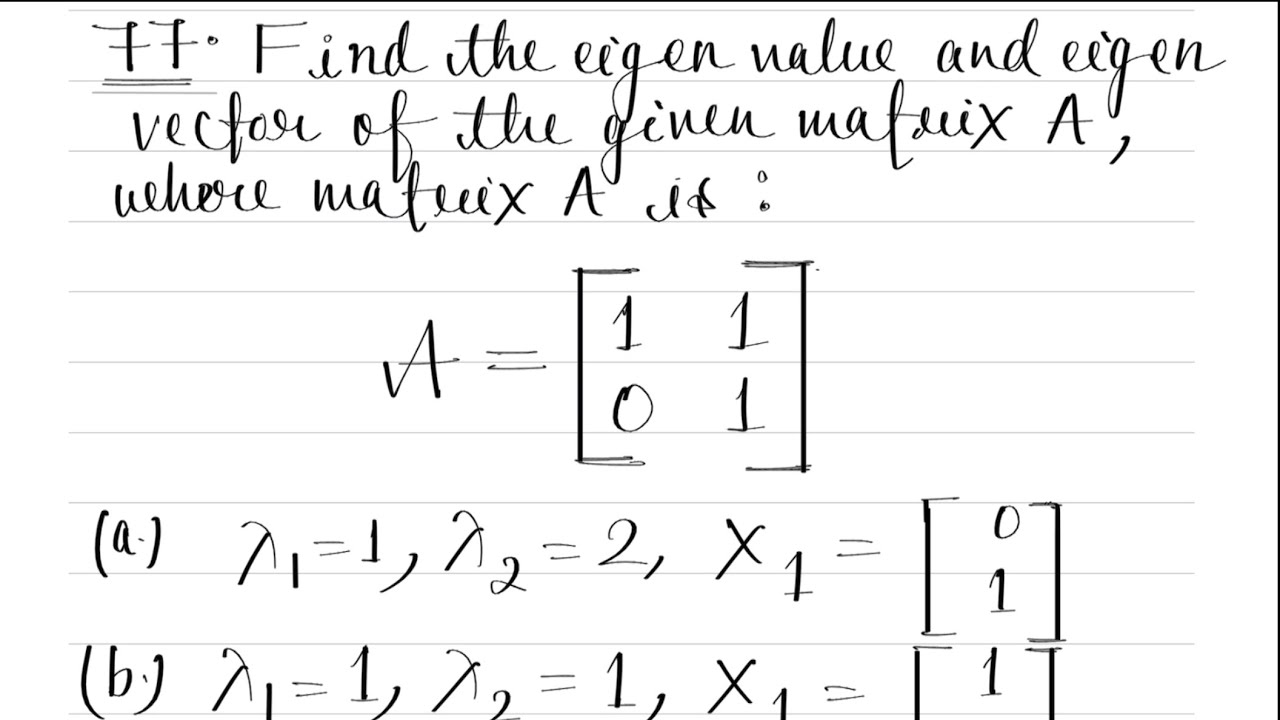 77. Find the eigen value and eigen
vector of the given matrix A,
where matrix A is :
A = [1 1
0 1]
(a.) λ₁=1, λ₂=2, X₁ = [0
1]
(b.) λ₁=1, λ₂=1, X₁ = [1